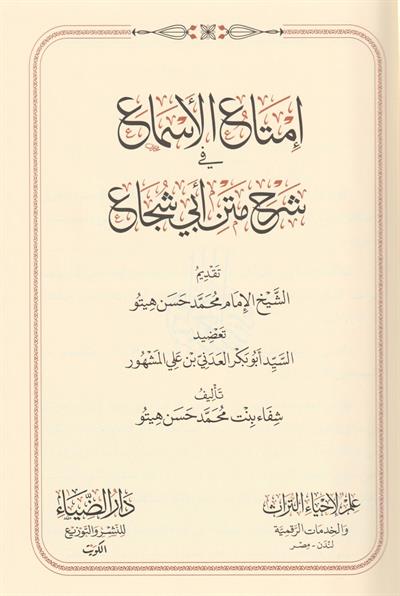 إمتاع الأسماع
في
شرح متن أبي شجاع
تقديم
الشيخ الإمام محمد حسن هيتو
تعضيد
السيد أبو بكر العدني بن علي المشهور
تأليف
شفاء بنت محمد حسن هيتو
علم لإحياء التراث
والخدمات الرقمية
لندن - مصر
دار الضياء
للنشر والتوزيع
الكويت